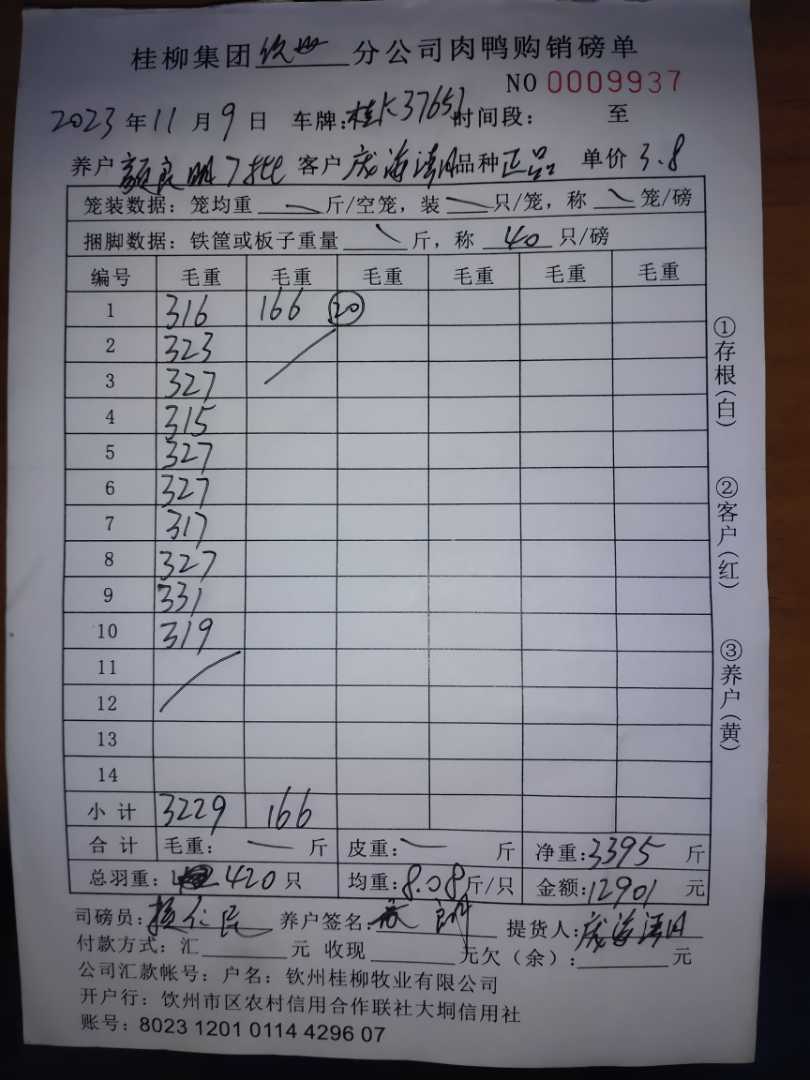 桂柳集团钦州分公司肉鸭购销磅单
NO 0009937
2023年11月9日 车牌:桂K37651 时间段: 至
养户 颜良明7批 客户 庞海清 品种 正品 单价 3.8
笼装数据:笼均重 斤/空笼,装 只/笼,称 笼/磅
捆脚数据:铁筐或板子重量 斤,称 40 只/磅
编号 毛重 毛重 毛重 毛重 毛重 毛重
1 316 166 20
2 323
3 327
4 315
5 327
6 327
7 317
8 327
9 331
10 319
11
12
13
14
小计 3229 166
合计 毛重: 斤 皮重: 斤 净重:3395 斤
总羽重: 420只 均重:8.08斤/只 金额:12901 元
司磅员: 养户签名: 提货人:庞海清
付款方式:汇 元 收现 元欠(余): 元
公司汇款帐号:户名:钦州桂柳牧业有限公司
开户行:钦州市区农村信用合作联社大垌信用社
账号:8023 1201 0114 4296 07
①存根(白)
②客户(红)
③养户(黄)